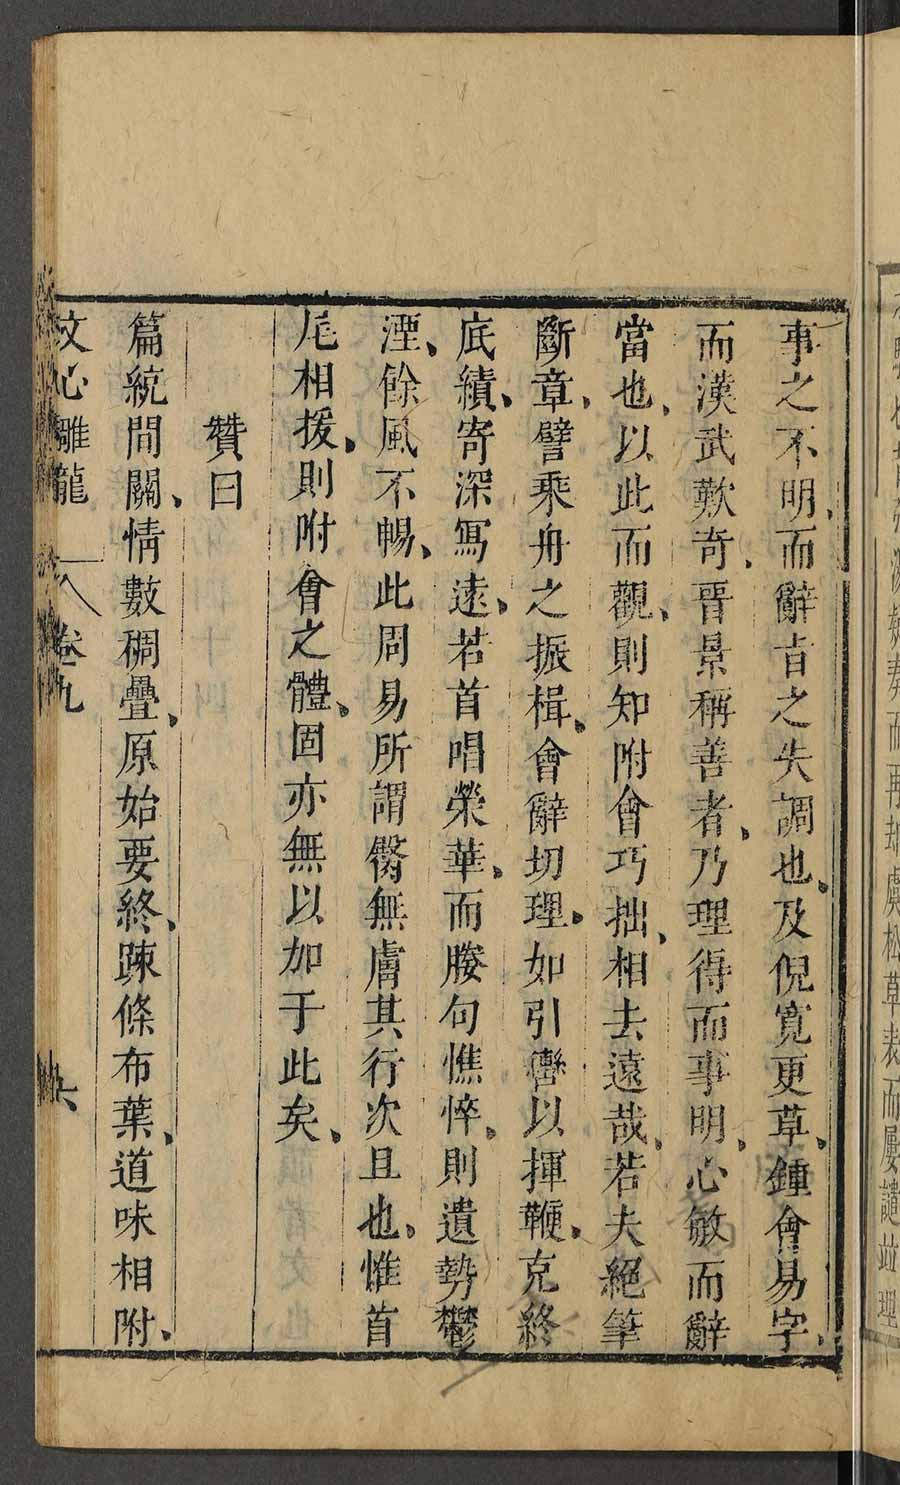 事之不明、而辭旨之失調也、及倪寬更草、鍾會易字、
而漢武歎奇、晉景稱善者、乃理得而事明、心敏而辭
當也、以此而觀、則知附會巧拙、相去遠哉、若夫絕筆
斷章、譬乘舟之振楫、會辭切理、如引轡以揮鞭、克終
底績、寄深寫遠、若首唱榮華、而媵句憔悴、則遺勢鬱
湮、餘風不暢、此周易所謂臀無膚其行次且也、惟首
尾相援、則附會之體、固亦無以加于此矣、
贊曰
篇統間關、情數稠疊、原始要終、疎條布葉、道味相附、
文心雕龍 卷九 六